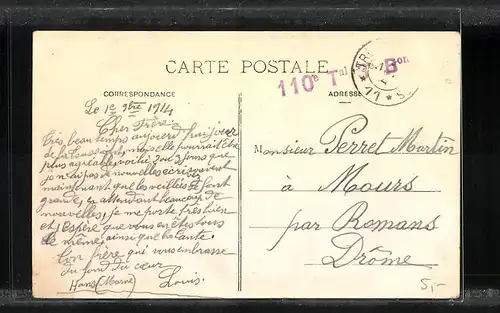 CARTE POSTALE
110e Tal Bon
11 * S
CORRESPONDANCE
ADRESSE
Le 1e 9bre 1914
Cher Frère.
Très beau temps aujourd'hui, jour
de la Toussaint,
plus agréable, voici 3 jours que
je n'ai pas de nouvelles écris souvent
maintenant que les veillées se font
grandes, en attendant beaucoup de
nouvelles, je me porte très bien
et j'espère que vous en êtes tous
de même, ainsi que la tante.
Ton frère qui vous embrasse
du fond du cœur
Louis.
Hans (Marne)
Monsieur Perret Martin
à Mours
par Romans
Drôme
5,-